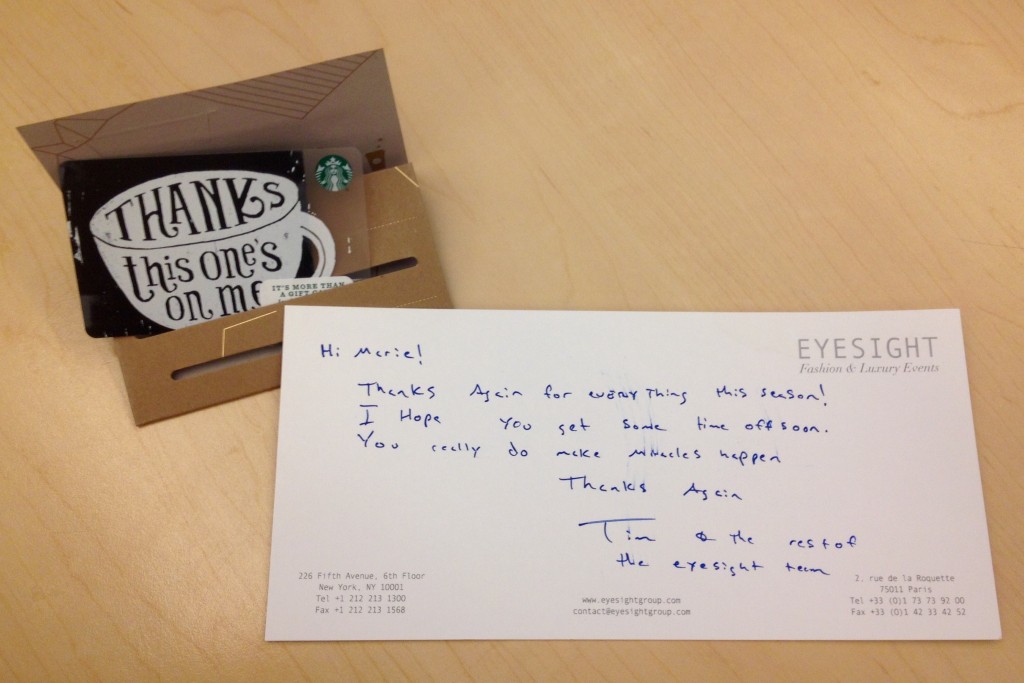 THANKS
this one's
on me
IT'S MORE THAN
A GIFT
EYESIGHT
Fashion & Luxury Events
Hi Marie!
Thanks Again for everything this season!
I Hope you get some time off soon.
You really do make miracles happen
Thanks Again
Tim & the rest of
the eyesight team
226 Fifth Avenue, 6th Floor
New York, NY 10001
Tel +1 212 213 1300
Fax +1 212 213 1568
www.eyesightgroup.com
contact@eyesightgroup.com
2, rue de la Roquette
75011 Paris
Tel +33 (0)1 73 73 92 00
Fax +33 (0)1 42 33 42 52